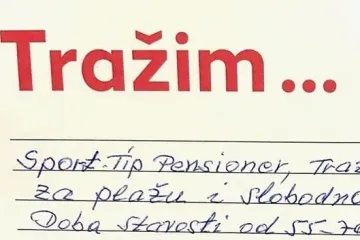 Tražim...
Sport-Tip Pensioner, Traž
za plažu i slobodno
Doba starosti od 55-70